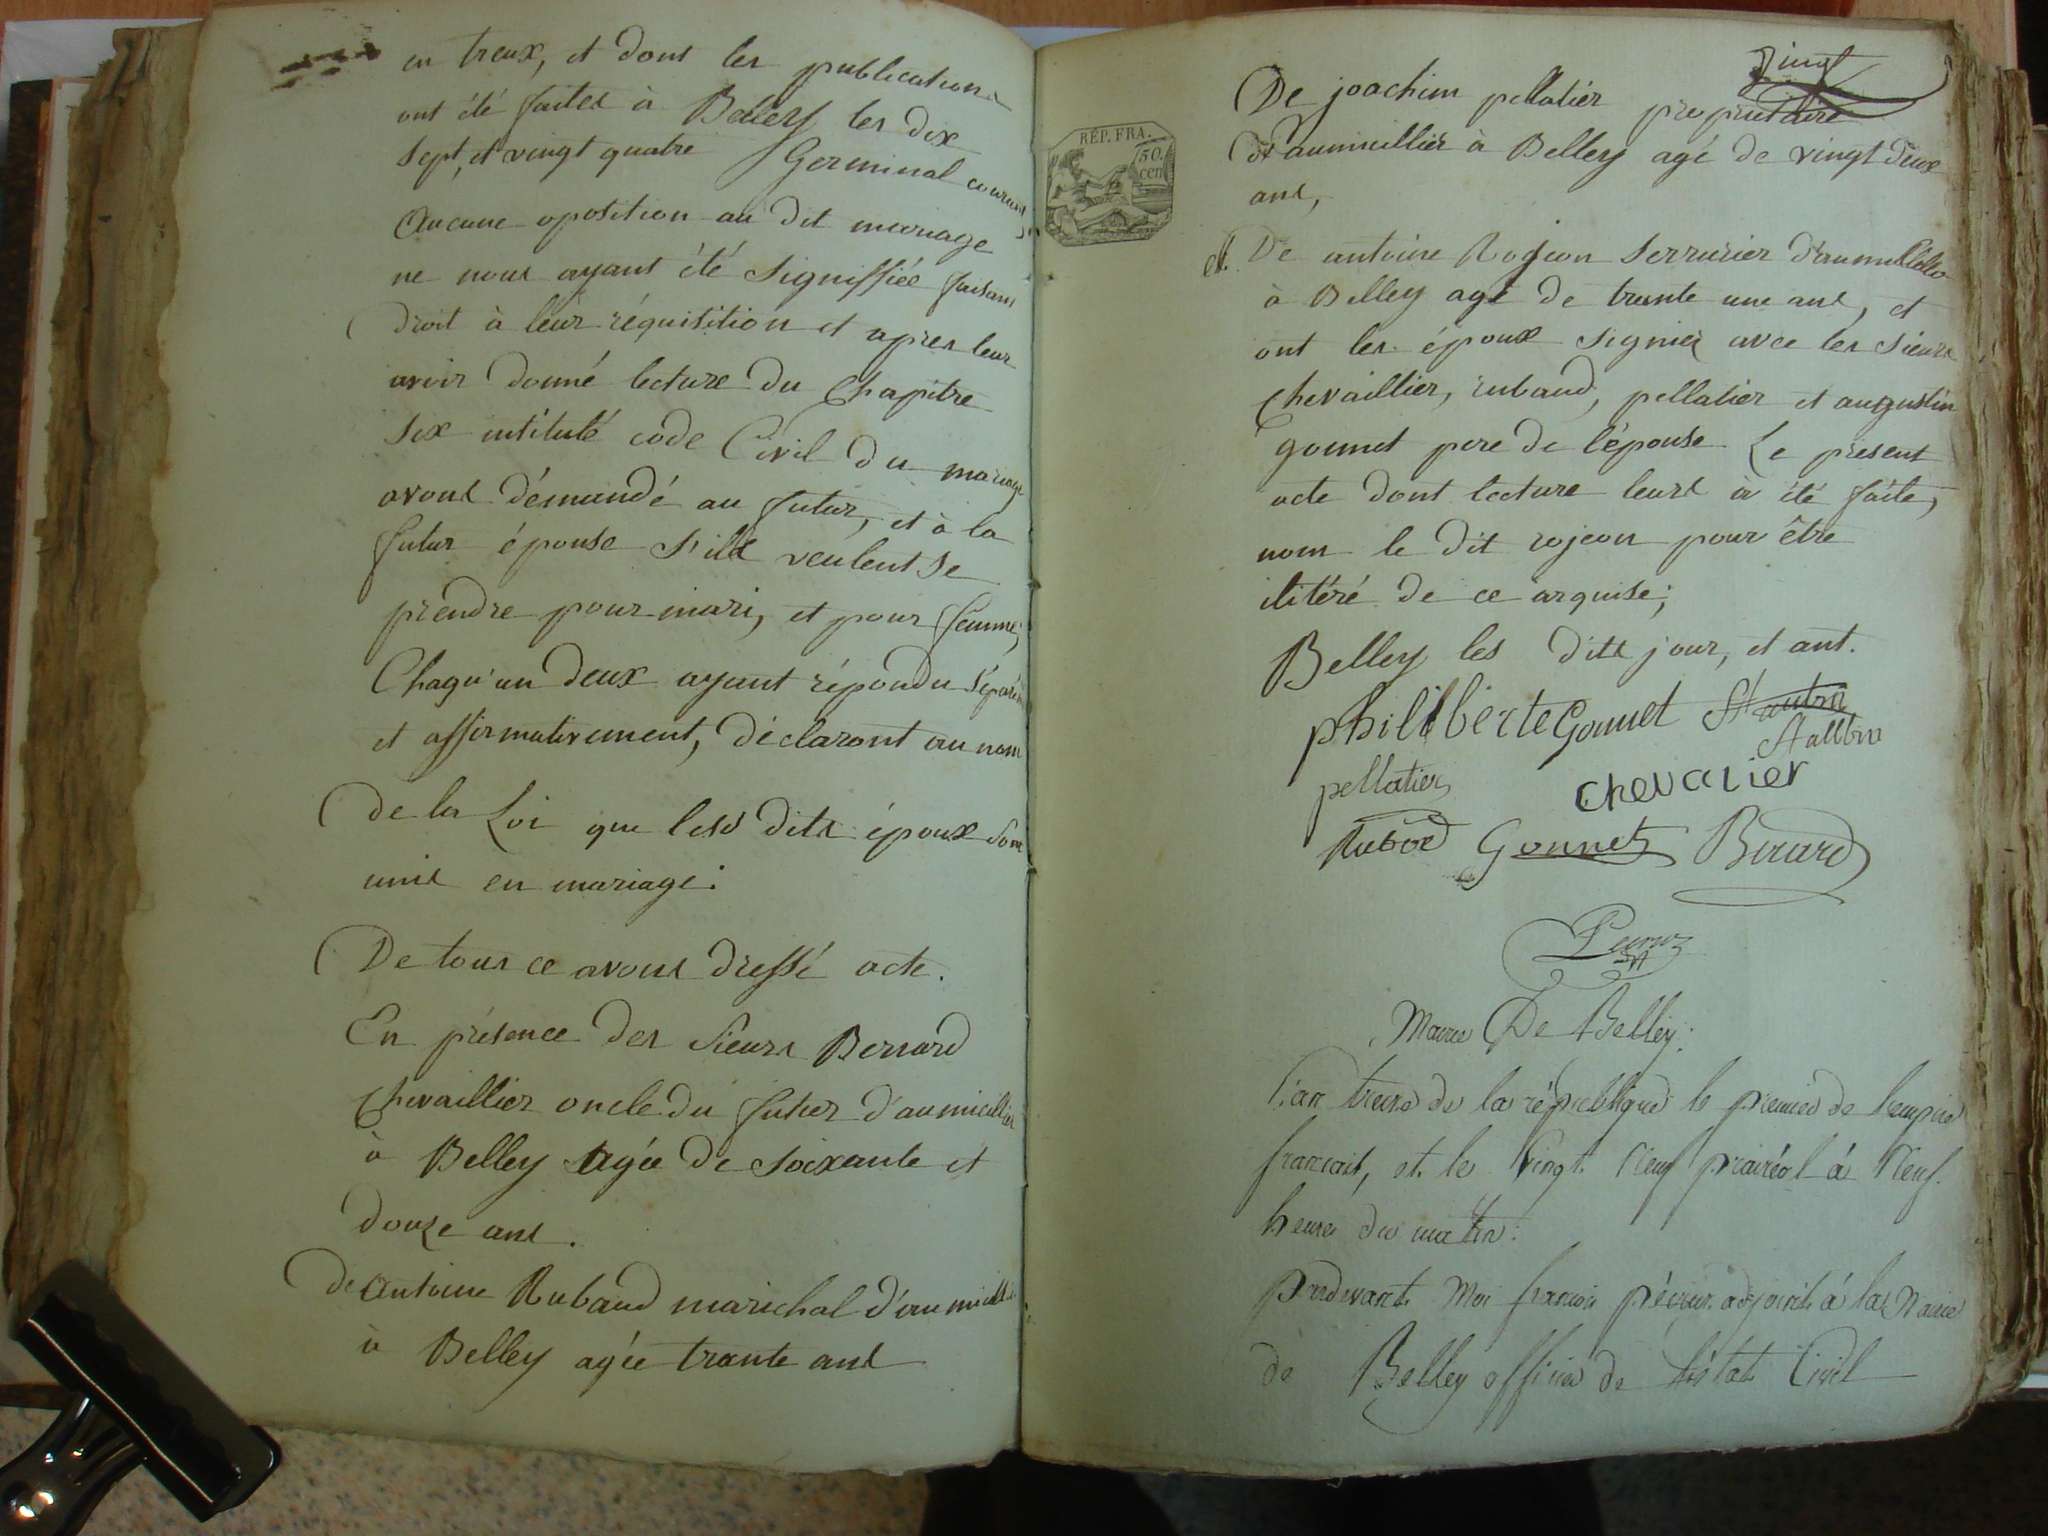 en treux, et dont les publications
ont été faites à Belley les dix
sept, et vingt quatre Germinal courant
Aucune oposition au dit mariage
ne nous ayant été signiffiée faisant
droit à leur réquisition et apres leur
avoir donné lecture du Chapitre
six intitulé code Civil du mariage
avons démandé au futur, et à la
futur épouse s'ils veulent se
prendre pour mari, et pour femme;
Chaqu'un deux ayant répondu séparém
et affirmativement, déclaront au nom
de la Loi que lesd dits époux sont
unis en mariage.
De tous ce avons dressé acte.
En présence des sieurs Bernard
Chevaillier oncle du futur d'aumicillier
à Belley agée de soixante et
douze ans.
de antoine Rubaud marichal d'aumicilli
à Belley agée trante ans
Vingt
De joachim pellatier proprietaire
d'aumicillier à Belley agé de vingt deux
ans,
RÉP. FRA.
50.
cen
et. De antoine Rojeon serrurier d'aumicillié
à Belley agé de trante une ans, et
ont les époux signiez avec les sieurs
chevaillier, rubaud, pellatier et augustin
gonnet pere de l'épouse Le présent
acte dont lecture leurs à été faite,
nom le dit rojeon pour être
ilitéré de ce arquise;
Belley les dits jour, et ant.
philiberte Gonnet
pellatier chevalier
Rubod Gonnet Berard
Maire De Belley.
l'an treize de la république le premier de l'empire
francais, et le vingt neuf prairéol à neuf
heures du matin:
pardevant Moi francois adjoint à la Mairie
de Belley officier de létat Civil